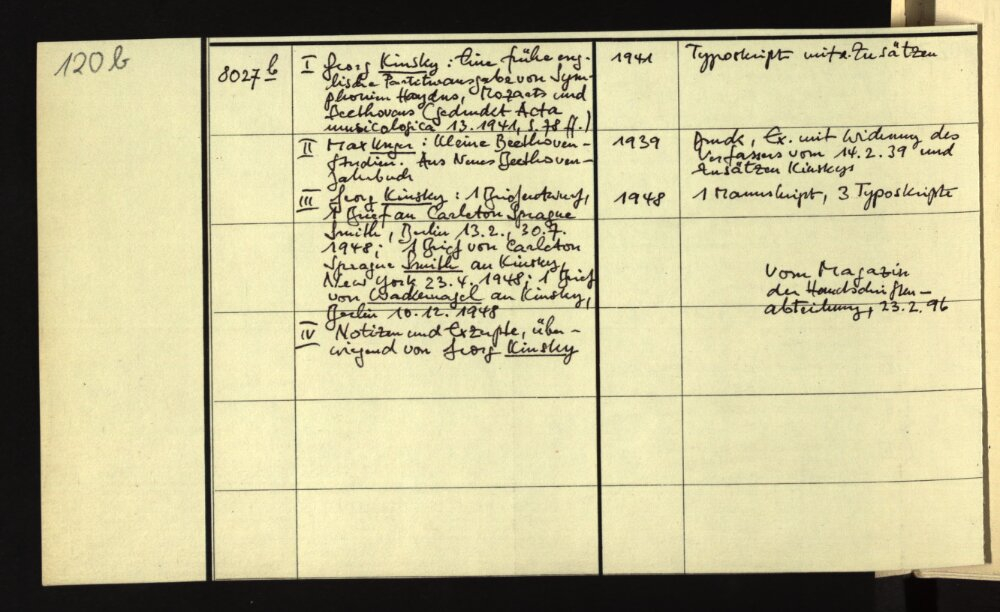 120b
8027 b
I Georg Kinsky: Eine frühe eng-
lische Partiturausgabe von Sym-
phonien Haydns, Mozarts und
Beethovens (gedruckt Acta
musicologica 13.1941, S. 78 ff.)
1941
Typoskript mit Zusätzen
II Max Unger: Kleine Beethoven-
Studien. Aus Neues Beethoven-
Jahrbuch
1939
Druck, Ex. mit Widmung des
Verfassers vom 14.2.39 und
Zusätzen Kinskys
III Georg Kinsky: 1 Briefentwurf,
1 Brief an Carleton Sprague
Smith, Berlin 13.2., 30.7.
1948; 1 Brief von Carleton
Sprague Smith an Kinsky,
New York 23.4.1948; 1 Brief
von Wackernagel an Kinsky,
Berlin 10.12.1948
1948
1 Manuskript, 3 Typoskripte
Vom Magazin
der Handschriften-
abteilung, 23.2.96
IV Notizen und Exzerpte, über-
wiegend von Georg Kinsky